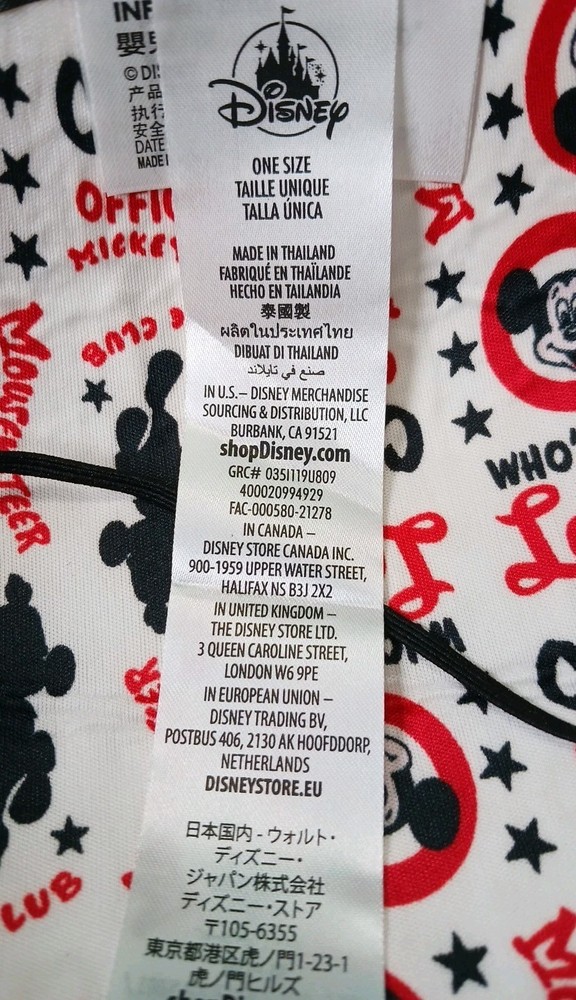 INF
嬰
©DIS
产品
执行
安全
DATE
MADE I
DISNEY
ONE SIZE
TAILLE UNIQUE
TALLA ÚNICA
MADE IN THAILAND
FABRIQUÉ EN THAÏLANDE
HECHO EN TAILANDIA
泰國製
ผลิตในประเทศไทย
DIBUAT DI THAILAND
صنع في تايلاند
IN U.S.– DISNEY MERCHANDISE
SOURCING & DISTRIBUTION, LLC
BURBANK, CA 91521
shopDisney.com
GRC# 0351119U809
400020994929
FAC-000580-21278
IN CANADA –
DISNEY STORE CANADA INC.
900-1959 UPPER WATER STREET,
HALIFAX NS B3J 2X2
IN UNITED KINGDOM –
THE DISNEY STORE LTD.
3 QUEEN CAROLINE STREET,
LONDON W6 9PE
IN EUROPEAN UNION –
DISNEY TRADING BV,
POSTBUS 406, 2130 AK HOOFDDORP,
NETHERLANDS
DISNEYSTORE.EU
日本国内 - ウォルト・
ディズニー・
ジャパン株式会社
ディズニー・ストア
〒105-6355
東京都港区虎ノ門1-23-1
虎ノ門ヒルズ
shopDi
OFFIC
MICKEY
CLUB
MOUSEKETEER
WHO'
LUB